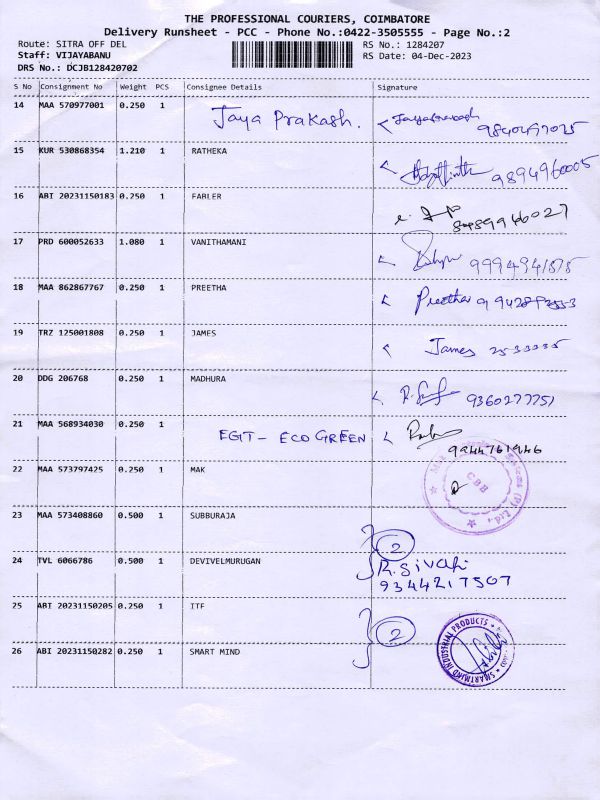 THE PROFESSIONAL COURIERS, COIMBATORE
Delivery Runsheet - PCC - Phone No.:0422-3505555 - Page No.:2
Route: SITRA OFF DEL RS No.: 1284207
Staff: VIJAYABANU RS Date: 04-Dec-2023
DRS No.: DCJB128420702
S No Consignment No Weight PCS Consignee Details Signature
14 MAA 570977001 0.250 1 Jaya Prakash.
15 KUR 530868354 1.210 1 RATHEKA
9894960005
16 ABI 20231150183 0.250 1 FABLER
17 PRD 600052633 1.080 1 VANITHAMANI
18 MAA 862867767 0.250 1 PREETHA Preetha
19 TRZ 125001808 0.250 1 JAMES
James
20 DDG 206768 0.250 1 MADHURA
9360277751
21 MAA 568934030 0.250 1 EGIT - ECO GREEN
9944761946
22 MAA 573797425 0.250 1 MAK
CBB
23 MAA 573408860 0.500 1 SUBBURAJA
2
24 TVL 6066786 0.500 1 DEVIVELMURUGAN R. Sivaji
9344217507
25 ABI 20231150205 0.250 1 ITF
2
26 ABI 20231150282 0.250 1 SMART MIND
SMARTMIND INDUSTRIAL PRODUCTS